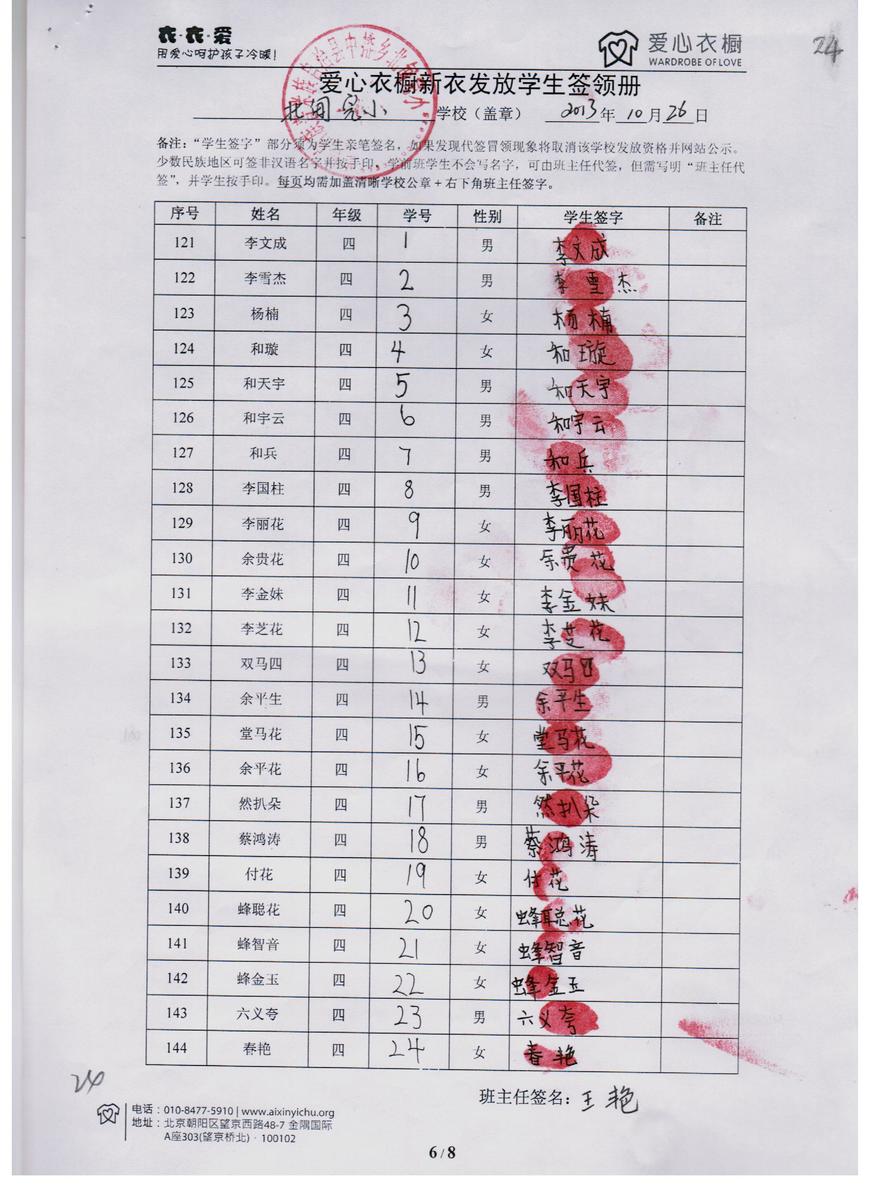 衣·衣·爱
用爱心呵护孩子冷暖!
爱心衣橱
WARDROBE OF LOVE
24
爱心衣橱新衣发放学生签领册
北甸完小 学校（盖章） 2013年10月26日
备注：“学生签字”部分须为学生亲笔签名，如果发现代签冒领现象将取消该学校发放资格并网站公示。
少数民族地区可签非汉语名字并按手印，学前班学生不会写名字，可由班主任代签，但需写明“班主任代
签”，并学生按手印。每页均需加盖清晰学校公章+右下角班主任签字。
序号 姓名 年级 学号 性别 学生签字 备注
121 李文成 四 1 男 李文成
122 李雪杰 四 2 男 李雪杰
123 杨楠 四 3 女 杨楠
124 和璇 四 4 女 和璇
125 和天宇 四 5 男 和天宇
126 和宇云 四 6 男 和宇云
127 和兵 四 7 男 和兵
128 李国柱 四 8 男 李国柱
129 李丽花 四 9 女 李丽花
130 余贵花 四 10 女 余贵花
131 李金妹 四 11 女 李金妹
132 李芝花 四 12 女 李芝花
133 双马四 四 13 女 双马四
134 余平生 四 14 男 余平生
135 堂马花 四 15 女 堂马花
136 余平花 四 16 女 余平花
137 然扒朵 四 17 男 然扒朵
138 蔡鸿涛 四 18 男 蔡鸿涛
139 付花 四 19 女 付花
140 蜂聪花 四 20 女 蜂聪花
141 蜂智音 四 21 女 蜂智音
142 蜂金玉 四 22 女 蜂金玉
143 六义夸 四 23 男 六义夸
144 春艳 四 24 女 春艳
24
班主任签名：王艳
电话：010-8477-5910 | www.aixinyichu.org
地址：北京朝阳区望京西路48-7 金隅国际
A座303(望京桥北)·100102
6 / 8